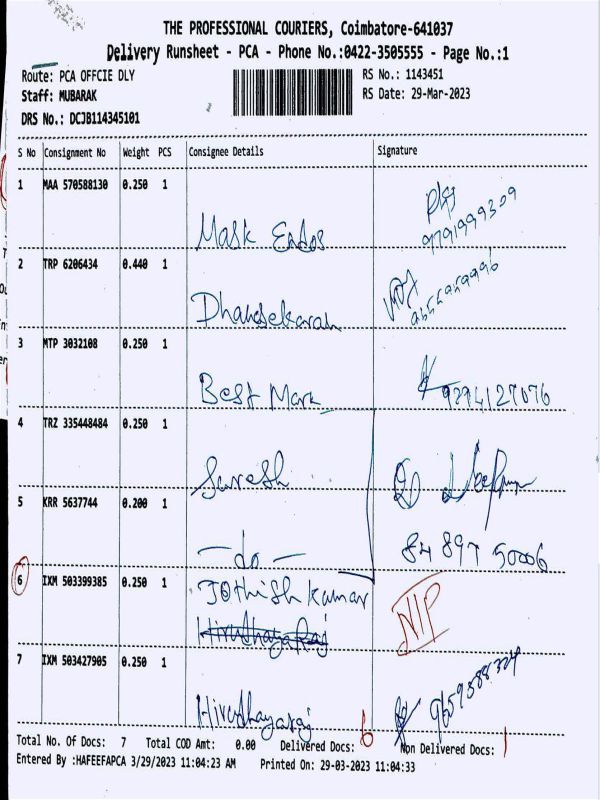 THE PROFESSIONAL COURIERS, Coimbatore-641037
Delivery Runsheet - PCA - Phone No.:0422-3505555 - Page No.:1
Route: PCA OFFCIE DLY RS No.: 1143451
Staff: MUBARAK RS Date: 29-Mar-2023
DRS No.: DCJB114345101
S No Consignment No Weight PCS Consignee Details Signature
1 MAA 570588130 0.250 1
Mask Endos 9791999309
2 TRP 6206434 0.440 1
Dhansekaran
3 MTP 3032108 0.250 1
Best Mark 9294127076
4 TRZ 335448484 0.250 1
Suresh
5 KRR 5637744 0.200 1
-do- 84 897 50006
6 IXM 503399385 0.250 1 Jothish kumar NIP
Hiruthayaraj
7 IXM 503427905 0.250 1
Hiruthayaraj 9659588324
Total No. Of Docs: 7 Total COD Amt: 0.00 Delivered Docs: 6 Non Delivered Docs: 1
Entered By :HAFEEFAPCA 3/29/2023 11:04:23 AM Printed On: 29-03-2023 11:04:33